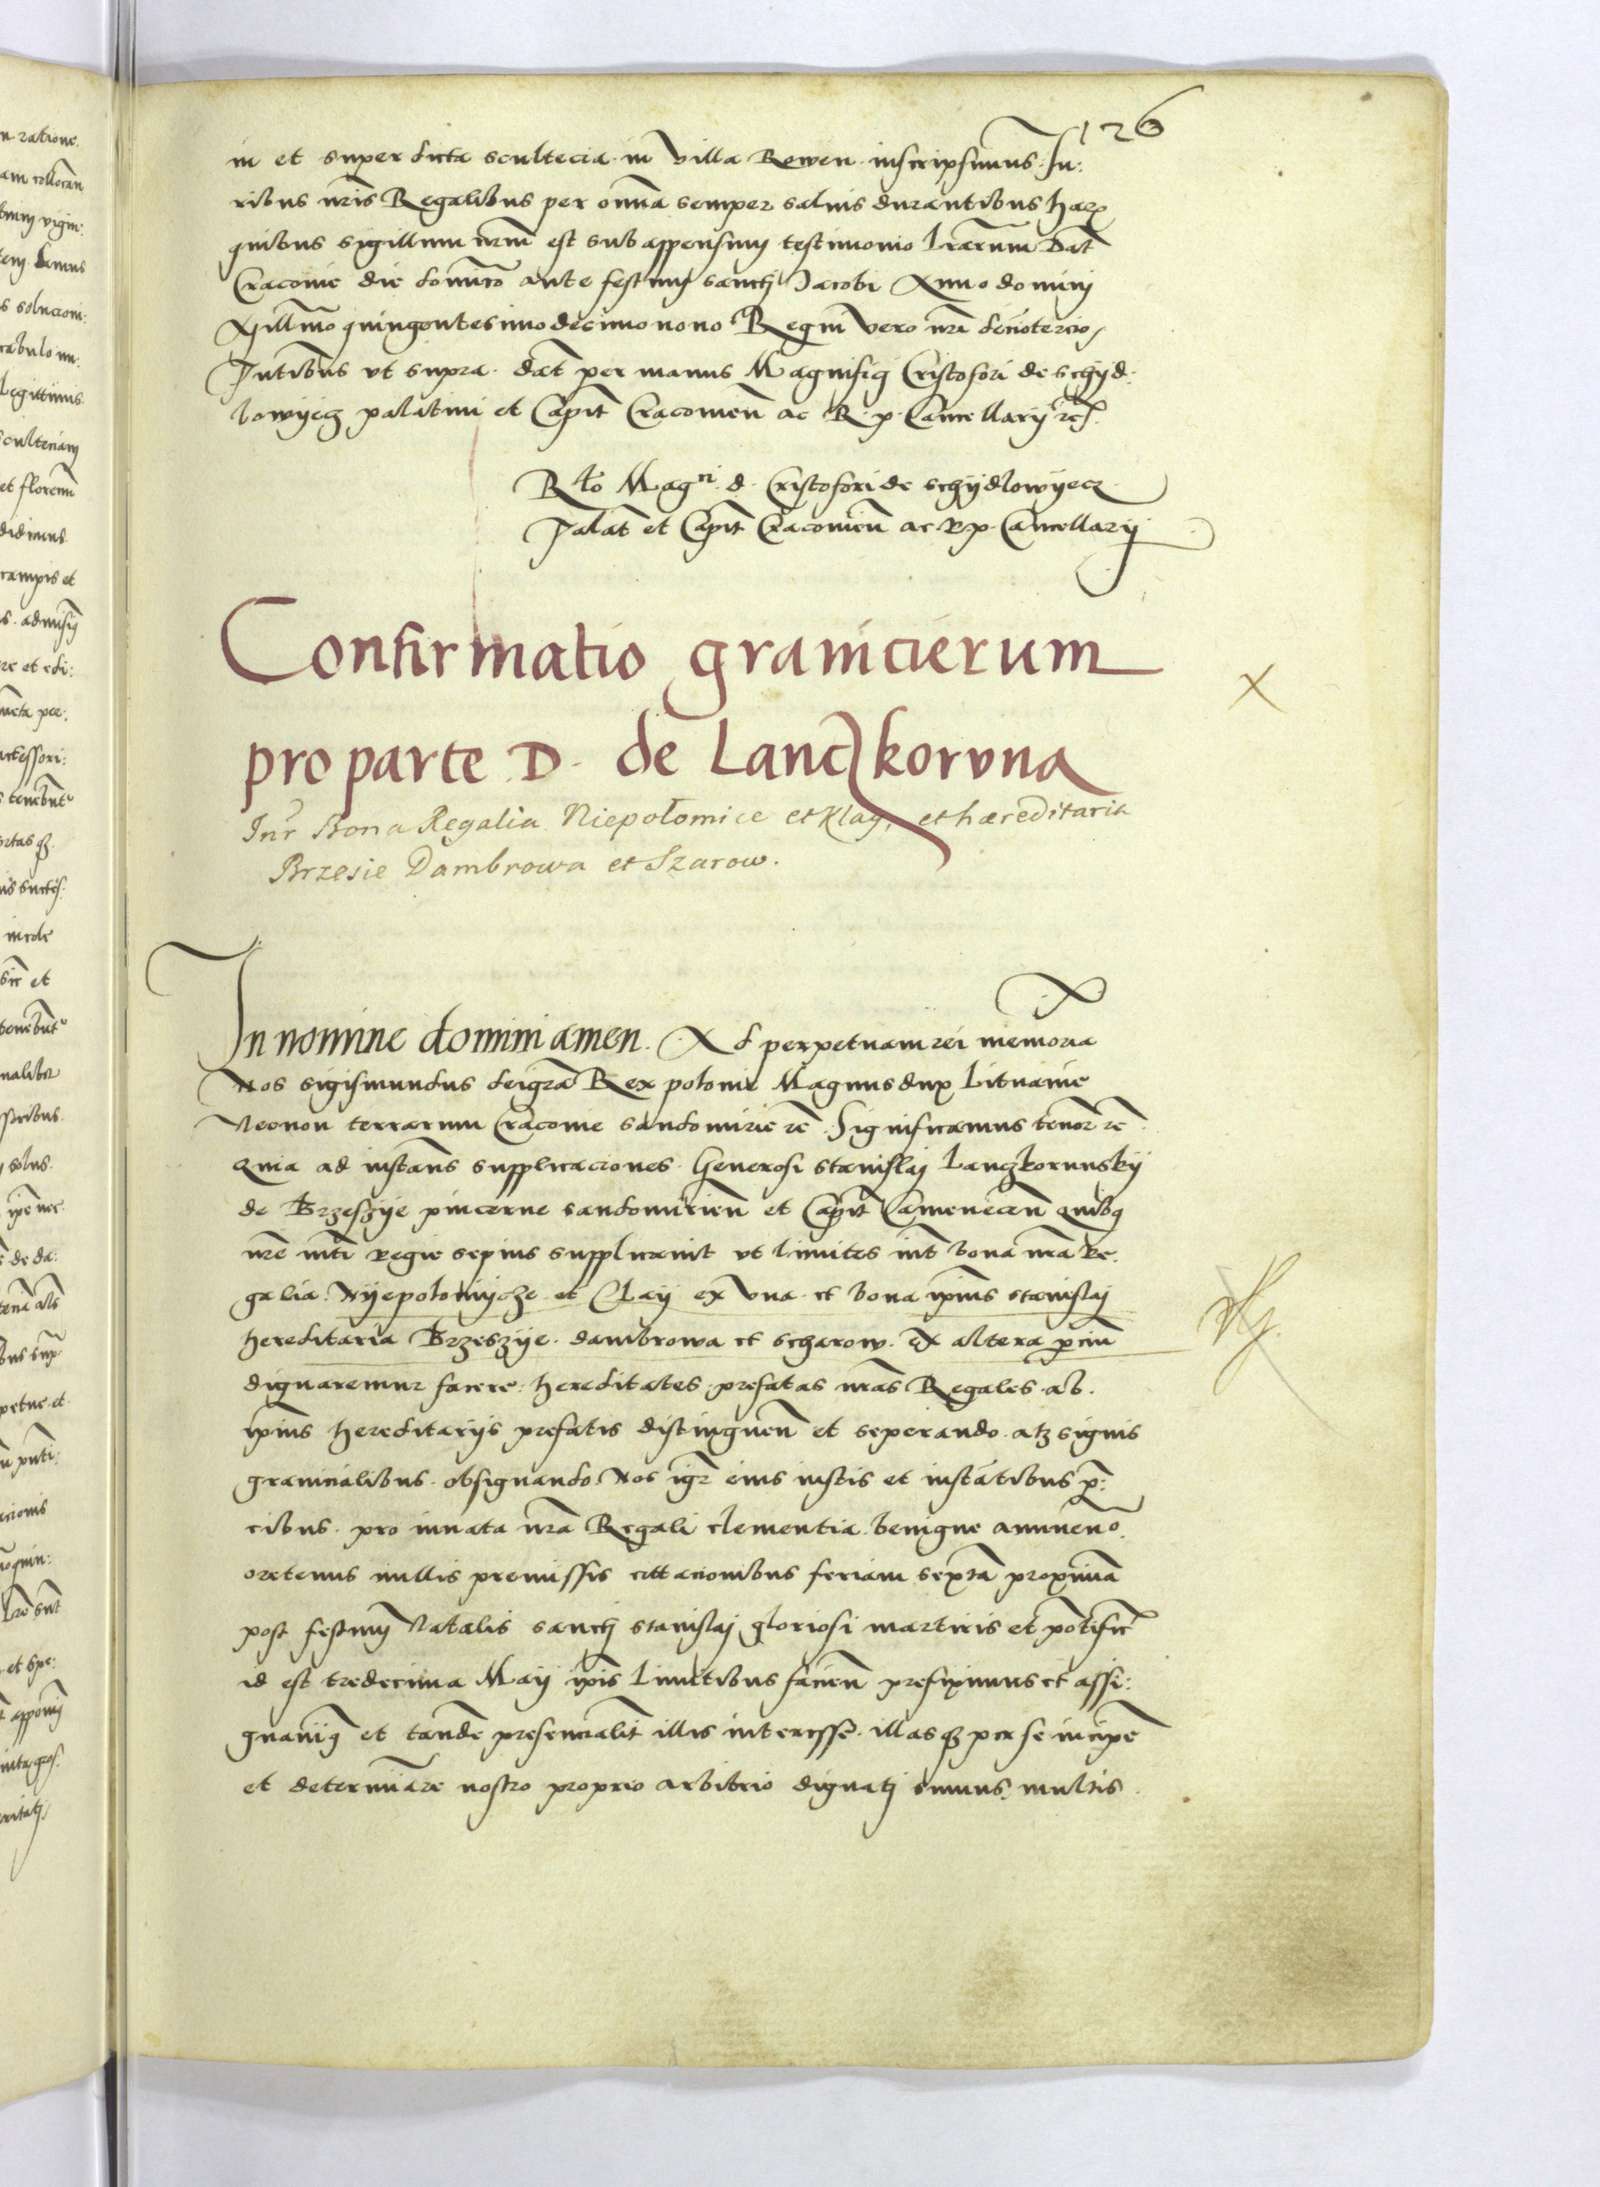 126
in et super dicta scultecia in villa Rewen inscripsimus. Iu:
ribus nris Regalibus per omnia semper salvis durantibus harz
quibus sigillum nrm est subappensum testimonio lrarum Dat
Cracovie die dominico ante festum sancti Jacobi Anno domini
Millmo quingentesimodecimonono Regni vero nri decimotercio
Pntibus ut supra. dat per manus Magnifici Cristofori de schyd:
lowyecz palatini et Capit Cracovien ac R. p. Cancellarij rc.
Rlto Magci d. Cristofori de schydlowyecz
Palat et Capit Cracovien ac R p. Cancellarij
Confirmatio granicierum
pro parte D. de Lanczkorvna
Intr Bona Regalia Niepołomice et Klay, et hæreditaria
Brzesie Dambrowa et Szarow.
In nomine domini amen. Ad perpetuam rei memoria
Nos sigismundus dei gra Rex polonie Magnus dux Lituanie
Necnon terrarum Cracovie sandomirie rc. Significamus tenor rc
Quia ad instans supplicaciones Generosi stanislaj Lanczkorunskij
de Brzeszye pincerne sandomirien et Capit Camenecen quibq
nre mti regie sepius supplicavit ut limites int bona nra Re:
galia. Nyepolomycze et Clay ex una et bona ipius stanislaj
hereditaria Brzeszye. dambrowa et scharow. ex altera pciu
dignaremur facere: hereditates prefatas nras Regales ab.
ipius hereditarijs prefatis distinguen et seperando. atz signis
granicialibus. obsignando. Nos igr eius iustis et instatibus p:
cibus. pro innata nra Regali clementia benigne annuen.
oretenus nullis premissis cittacionibus feriam sexta proxima
post festum Natalis sancti stanislaj gloriosi martiris et potific
id est tredecima Maij ipis limitibus facien prefiximus et assi:
gnavimq et tande presencialit illis interesse. illas qz per se incipe
et determinare nostro proprio arbitrio dignatj sumus, multis